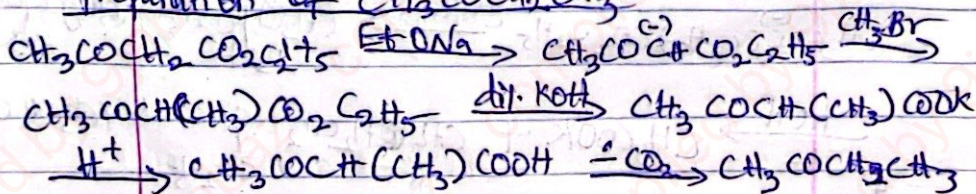 Preparation of CH3COCH2CH3
CH3COCH2 CO2C2H5 EtONa → CH3CO(-)CH CO2C2H5 CH3Br →
CH3 COCH(CH3) CO2 C2H5 dil. KOH → CH3 COCH (CH3) COOK
H+ → CH3COCH (CH3) COOH -CO2 → CH3 COCH2CH3